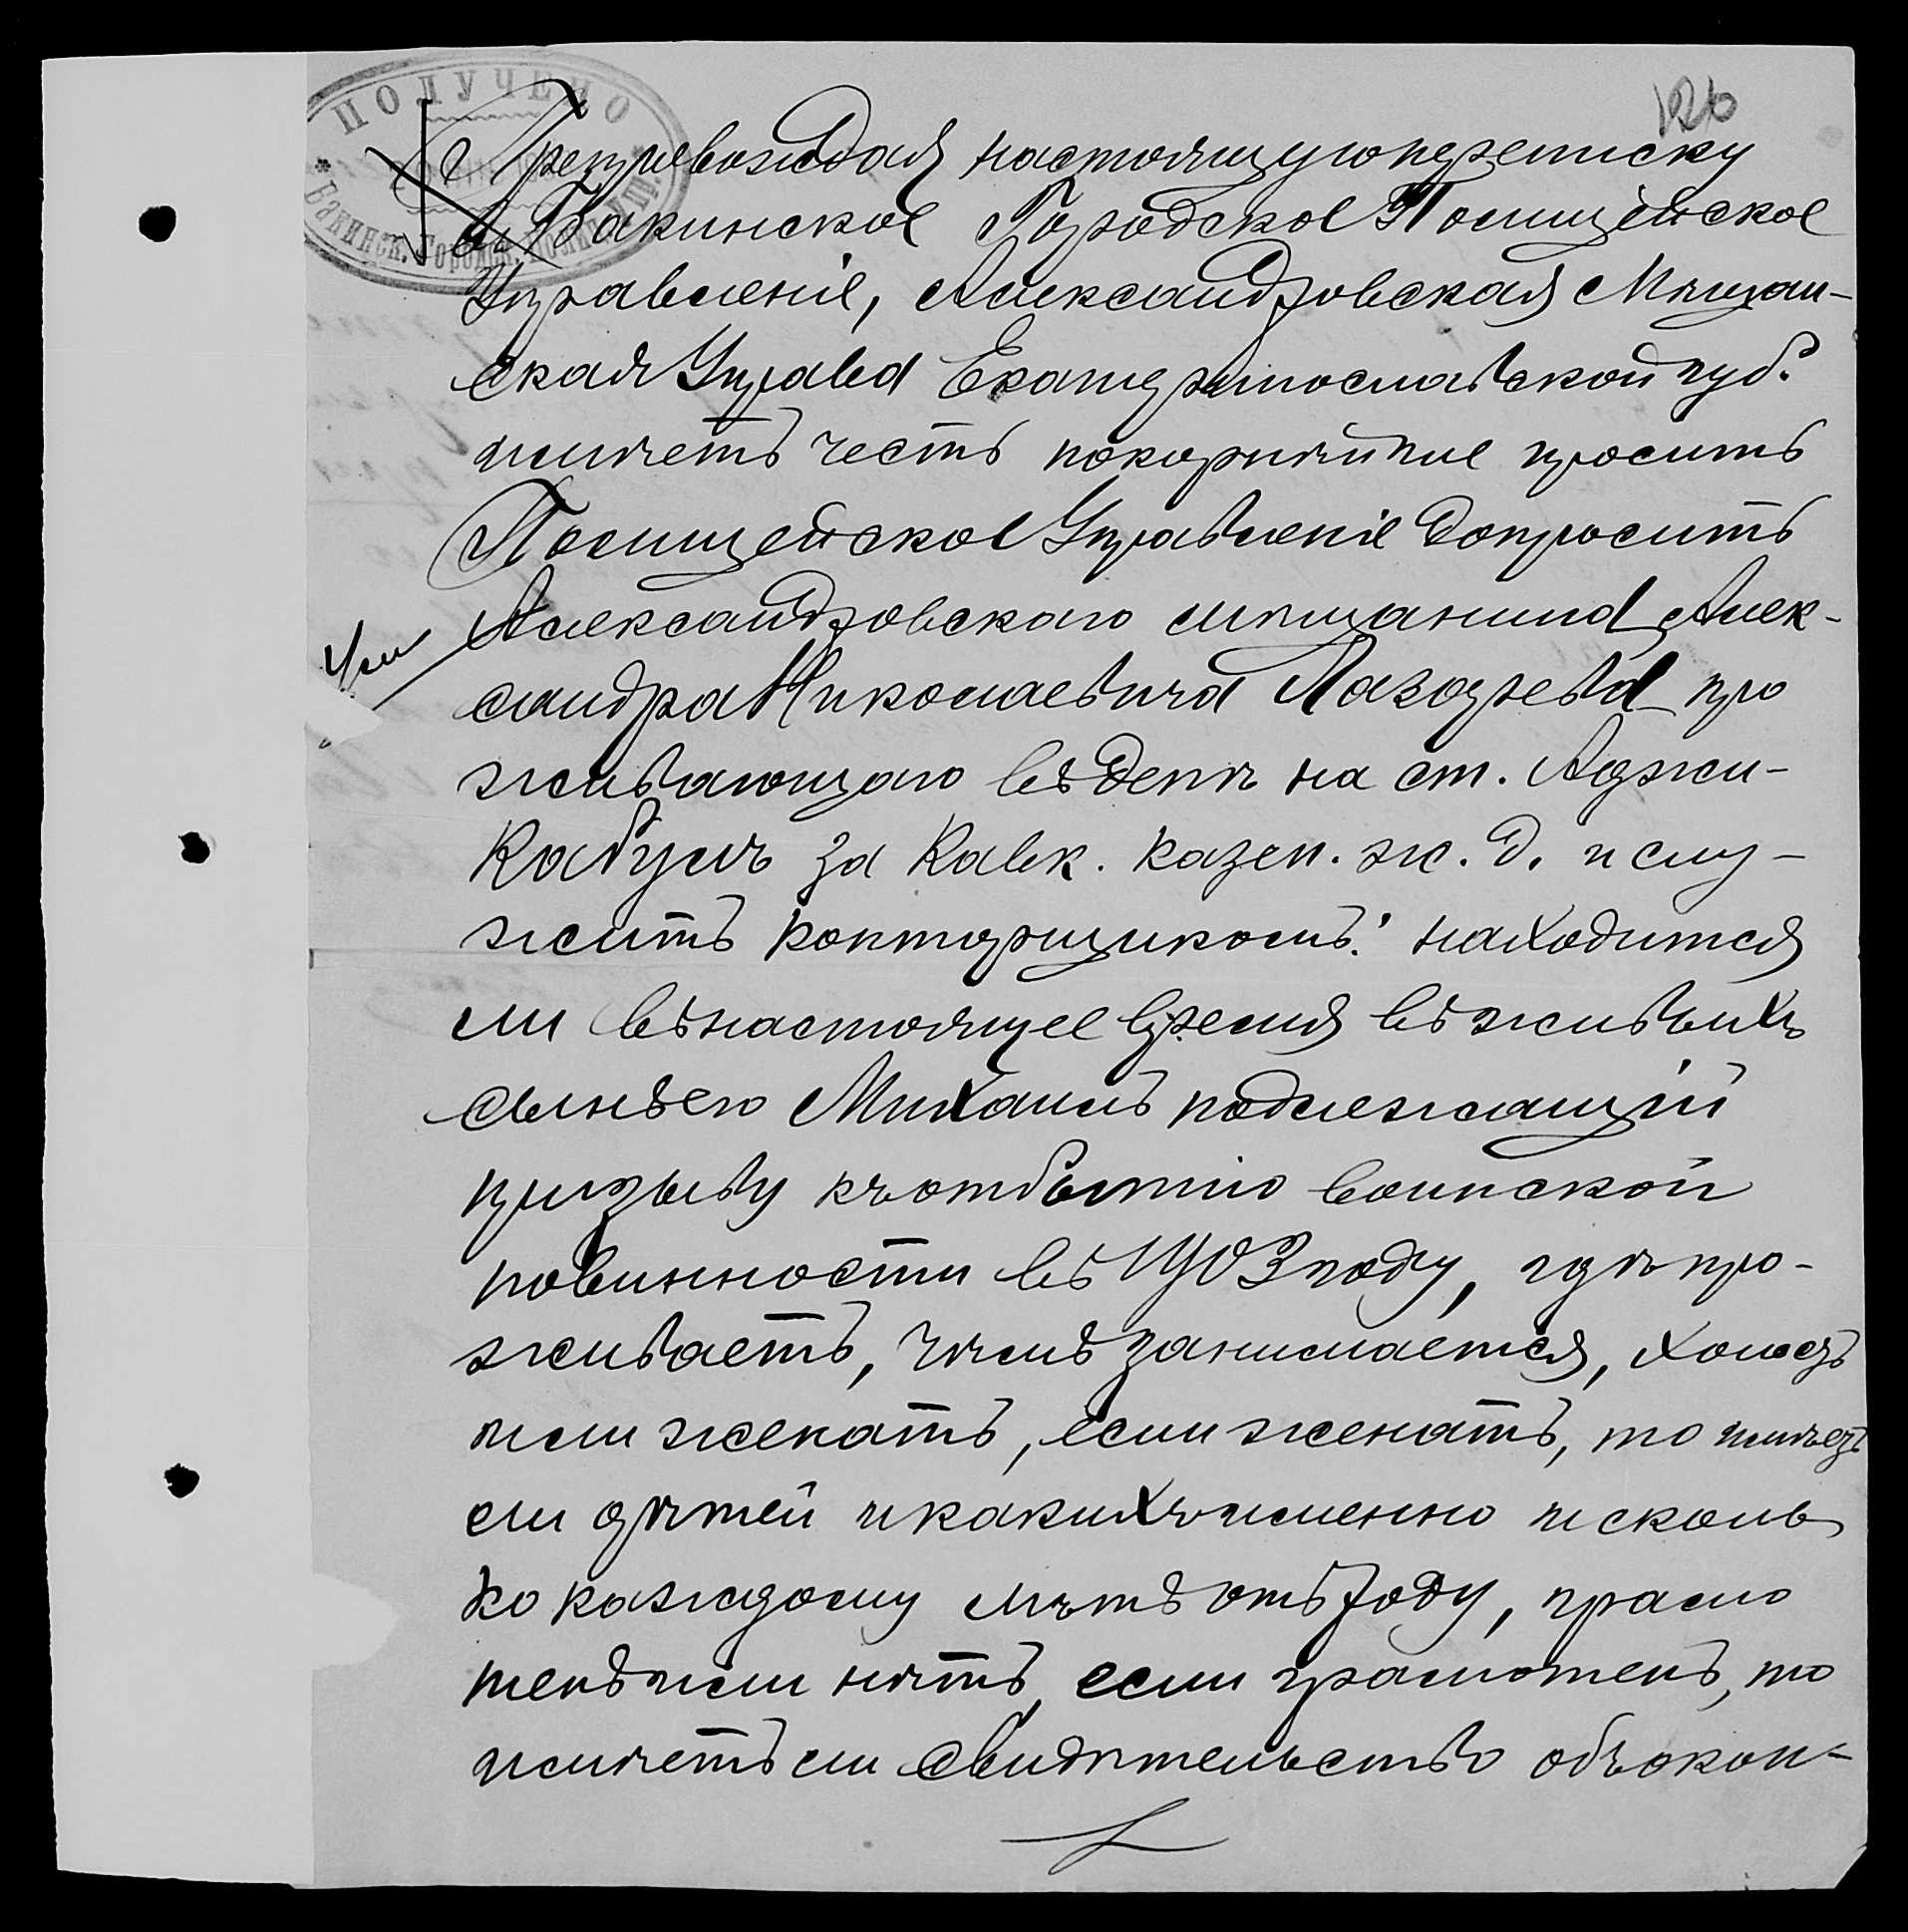 126
ПОЛУЧЕНО
Бакинск. Городск. Полиц. Упр.
Препровождая настоящую переписку
въ Бакинское Городское Полицейское
Управленіе, Александровская Мѣщан-
ская Управа Екатеринославской губ.
имѣетъ честь покорнѣйше просить
Полицейское Управленіе допросить
Александровскаго мѣщанина Алек-
сандра Николаевича Лазарева про
живающаго въ депѣ на ст. Аджи-
Кабулъ За Кавк. казен. ж. д. и слу-
житъ конторщикомъ: находится
ли въ настоящее время въ живыхъ
сынъ его Михаилъ подлежащій
призыву къ отбытію воинской
повинности въ 1903 году, гдѣ про-
живаетъ, чѣмъ занимается, холостъ
или женатъ, если женатъ, то имѣетъ
ли дѣтей и какихъ именно и сколь
ко каждому лѣтъ отъ роду, грамо
тенъ или нѣтъ, если грамотенъ, то
имѣетъ ли свидѣтельство объ окон-